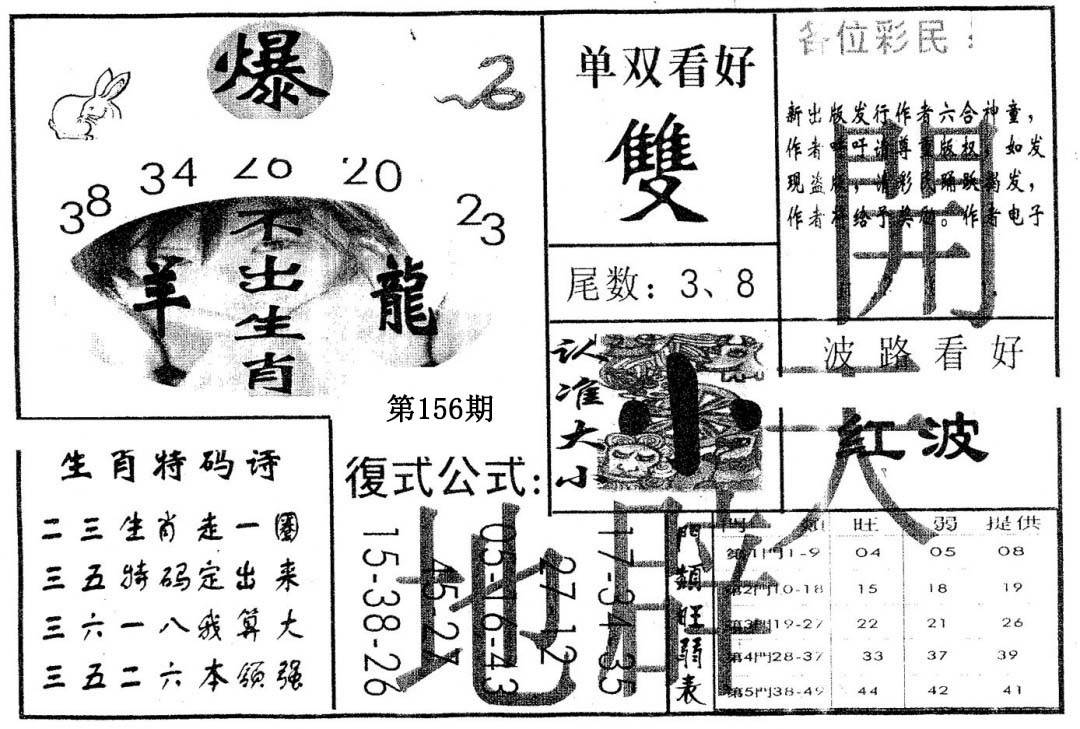 爆
38 34 26 20 23
不出生肖
羊
龍
第156期
单双看好
雙
尾数：3、8
各位彩民：
新出版发行作者六合神童，
作者呼吁请尊重版权，如发
现盗版，请彩民踊跃揭发，
作者将给予奖励。作者电子
開
天
闢
地
认准大小
小
波路看好
红波
生肖特码诗
二三生肖走一圈
三五特码定出来
三六一八我算大
三五二六本领强
復式公式:
15-38-26
45-27
05-16-43
27-12
17-34-35
門類旺弱表
門類 旺 弱 提供
第1門1-9 04 05 08
第2門10-18 15 18 19
第3門19-27 22 21 26
第4門28-37 33 37 39
第5門38-49 44 42 41